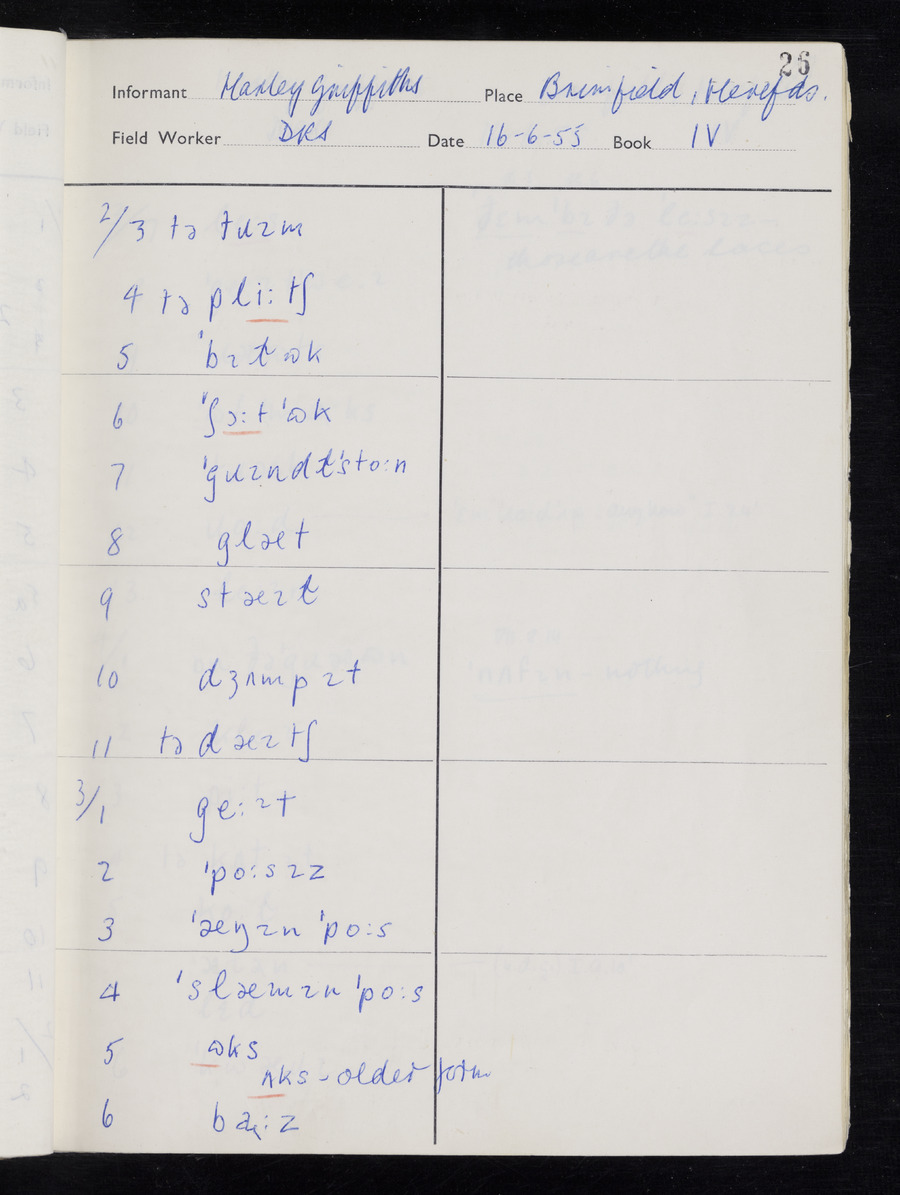 26
Informant Harley Griffiths Place Brimfield, Herefds.
Field Worker DRS Date 16-6-55 Book IV
2/3 tə tɹɪm
4 tə pliːtʃ
5 ˈbɪɫɒk
6 ˈʃɔːtˈɒk
7 ˈgɹɪndɫˈstoːn
8 glæt
9 stæɪɫ
10 dʒʌmpɪt
11 tə dæɪtʃ
3/1 geːɪt
2 ˈpoːsɪz
3 ˈæŋɪn ˈpoːs
4 ˈslæmɪn ˈpoːs
5 ɒks
ʌks - older form
6 bąːz